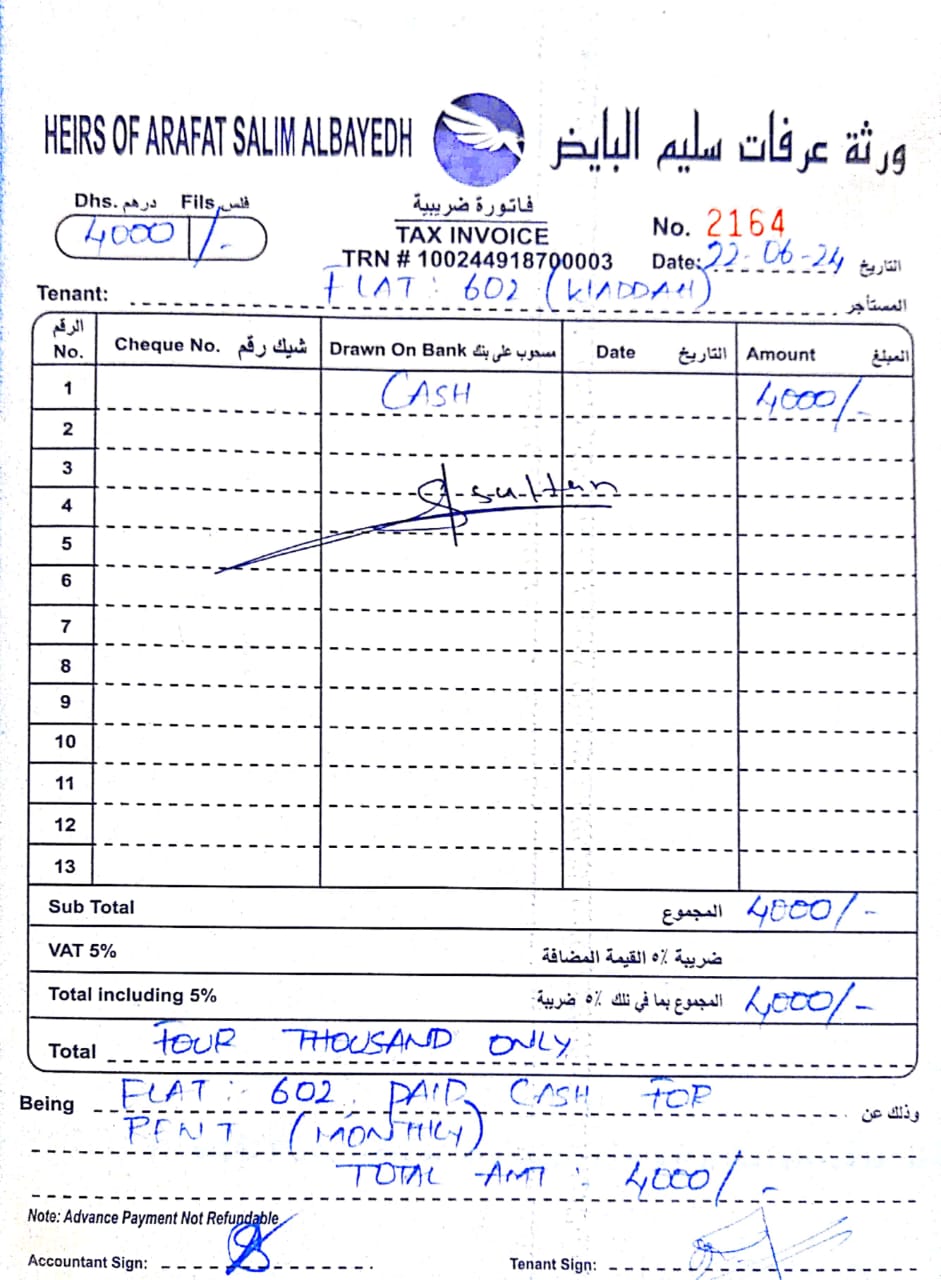 HEIRS OF ARAFAT SALIM ALBAYEDH ورثة عرفات سليم البايض
Dhs. درهم Fils فلس
4000 /-
فاتورة ضريبية
TAX INVOICE
TRN # 100244918700003
No. 2164
Date: 22-06-24 التاريخ
Tenant: FLAT: 602 (KIADDAH) المستأجر
الرقم No. Cheque No. شيك رقم Drawn On Bank مسحوب على بنك Date التاريخ Amount المبلغ
1 CASH 4000/-
2
3
4 sultan
5
6
7
8
9
10
11
12
13
Sub Total المجموع 4000/-
VAT 5% ضريبة ٥٪ القيمة المضافة
Total including 5% المجموع بما في تلك ٥٪ ضريبة 4,000/-
Total FOUR THOUSAND ONLY
Being FLAT: 602. PAID CASH FOR وذلك عن
RENT (MONTHLY)
TOTAL AMT: 4000/-
Note: Advance Payment Not Refundable
Accountant Sign: Tenant Sign: